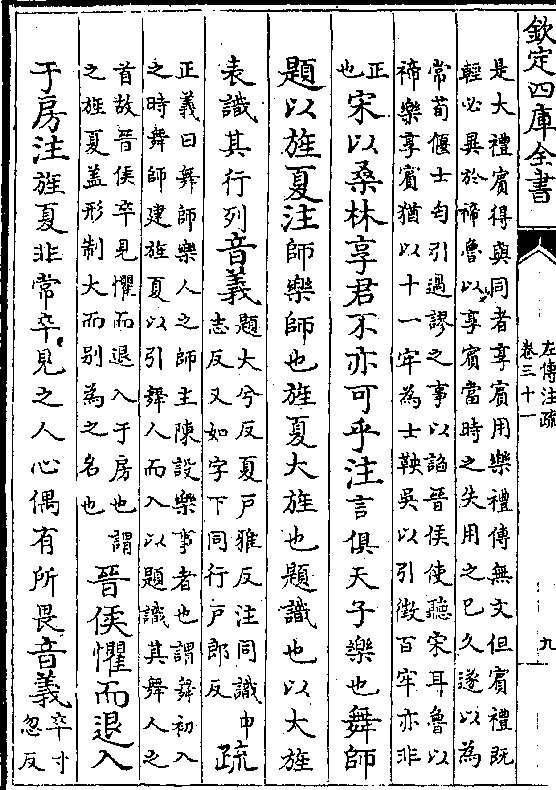 欽定四庫全書
左傳注疏
卷三十一
九
是大禮賓得與同者享賓用樂禮傳無文但賓禮既
輕必異於禘魯以享賓當時之失用之已久遂以為
常荀偃士匄引過謬之事以諂晉侯使聽宋耳魯以
禘樂享賓猶以十一牢為士鞅吳以引徵百牢亦非
正
也
宋以桑林享君不亦可乎注言俱天子樂也舞師
題以旌夏注師樂師也旌夏大旌也題識也以大旌
表識其行列音義
題大兮反夏戸雅反注同識申
志反又如字下同行戸郎反
疏
正義曰舞師樂人之師主陳設樂事者也謂舞初入
之時舞師建旌夏以引舞人而入以題識其舞人之
首故晉侯卒見懼而退入于房也謂
之旌夏蓋形制大而别為之名也
晉侯懼而退入
于房注旌夏非常卒見之人心偶有所畏音義
卒寸
忽反